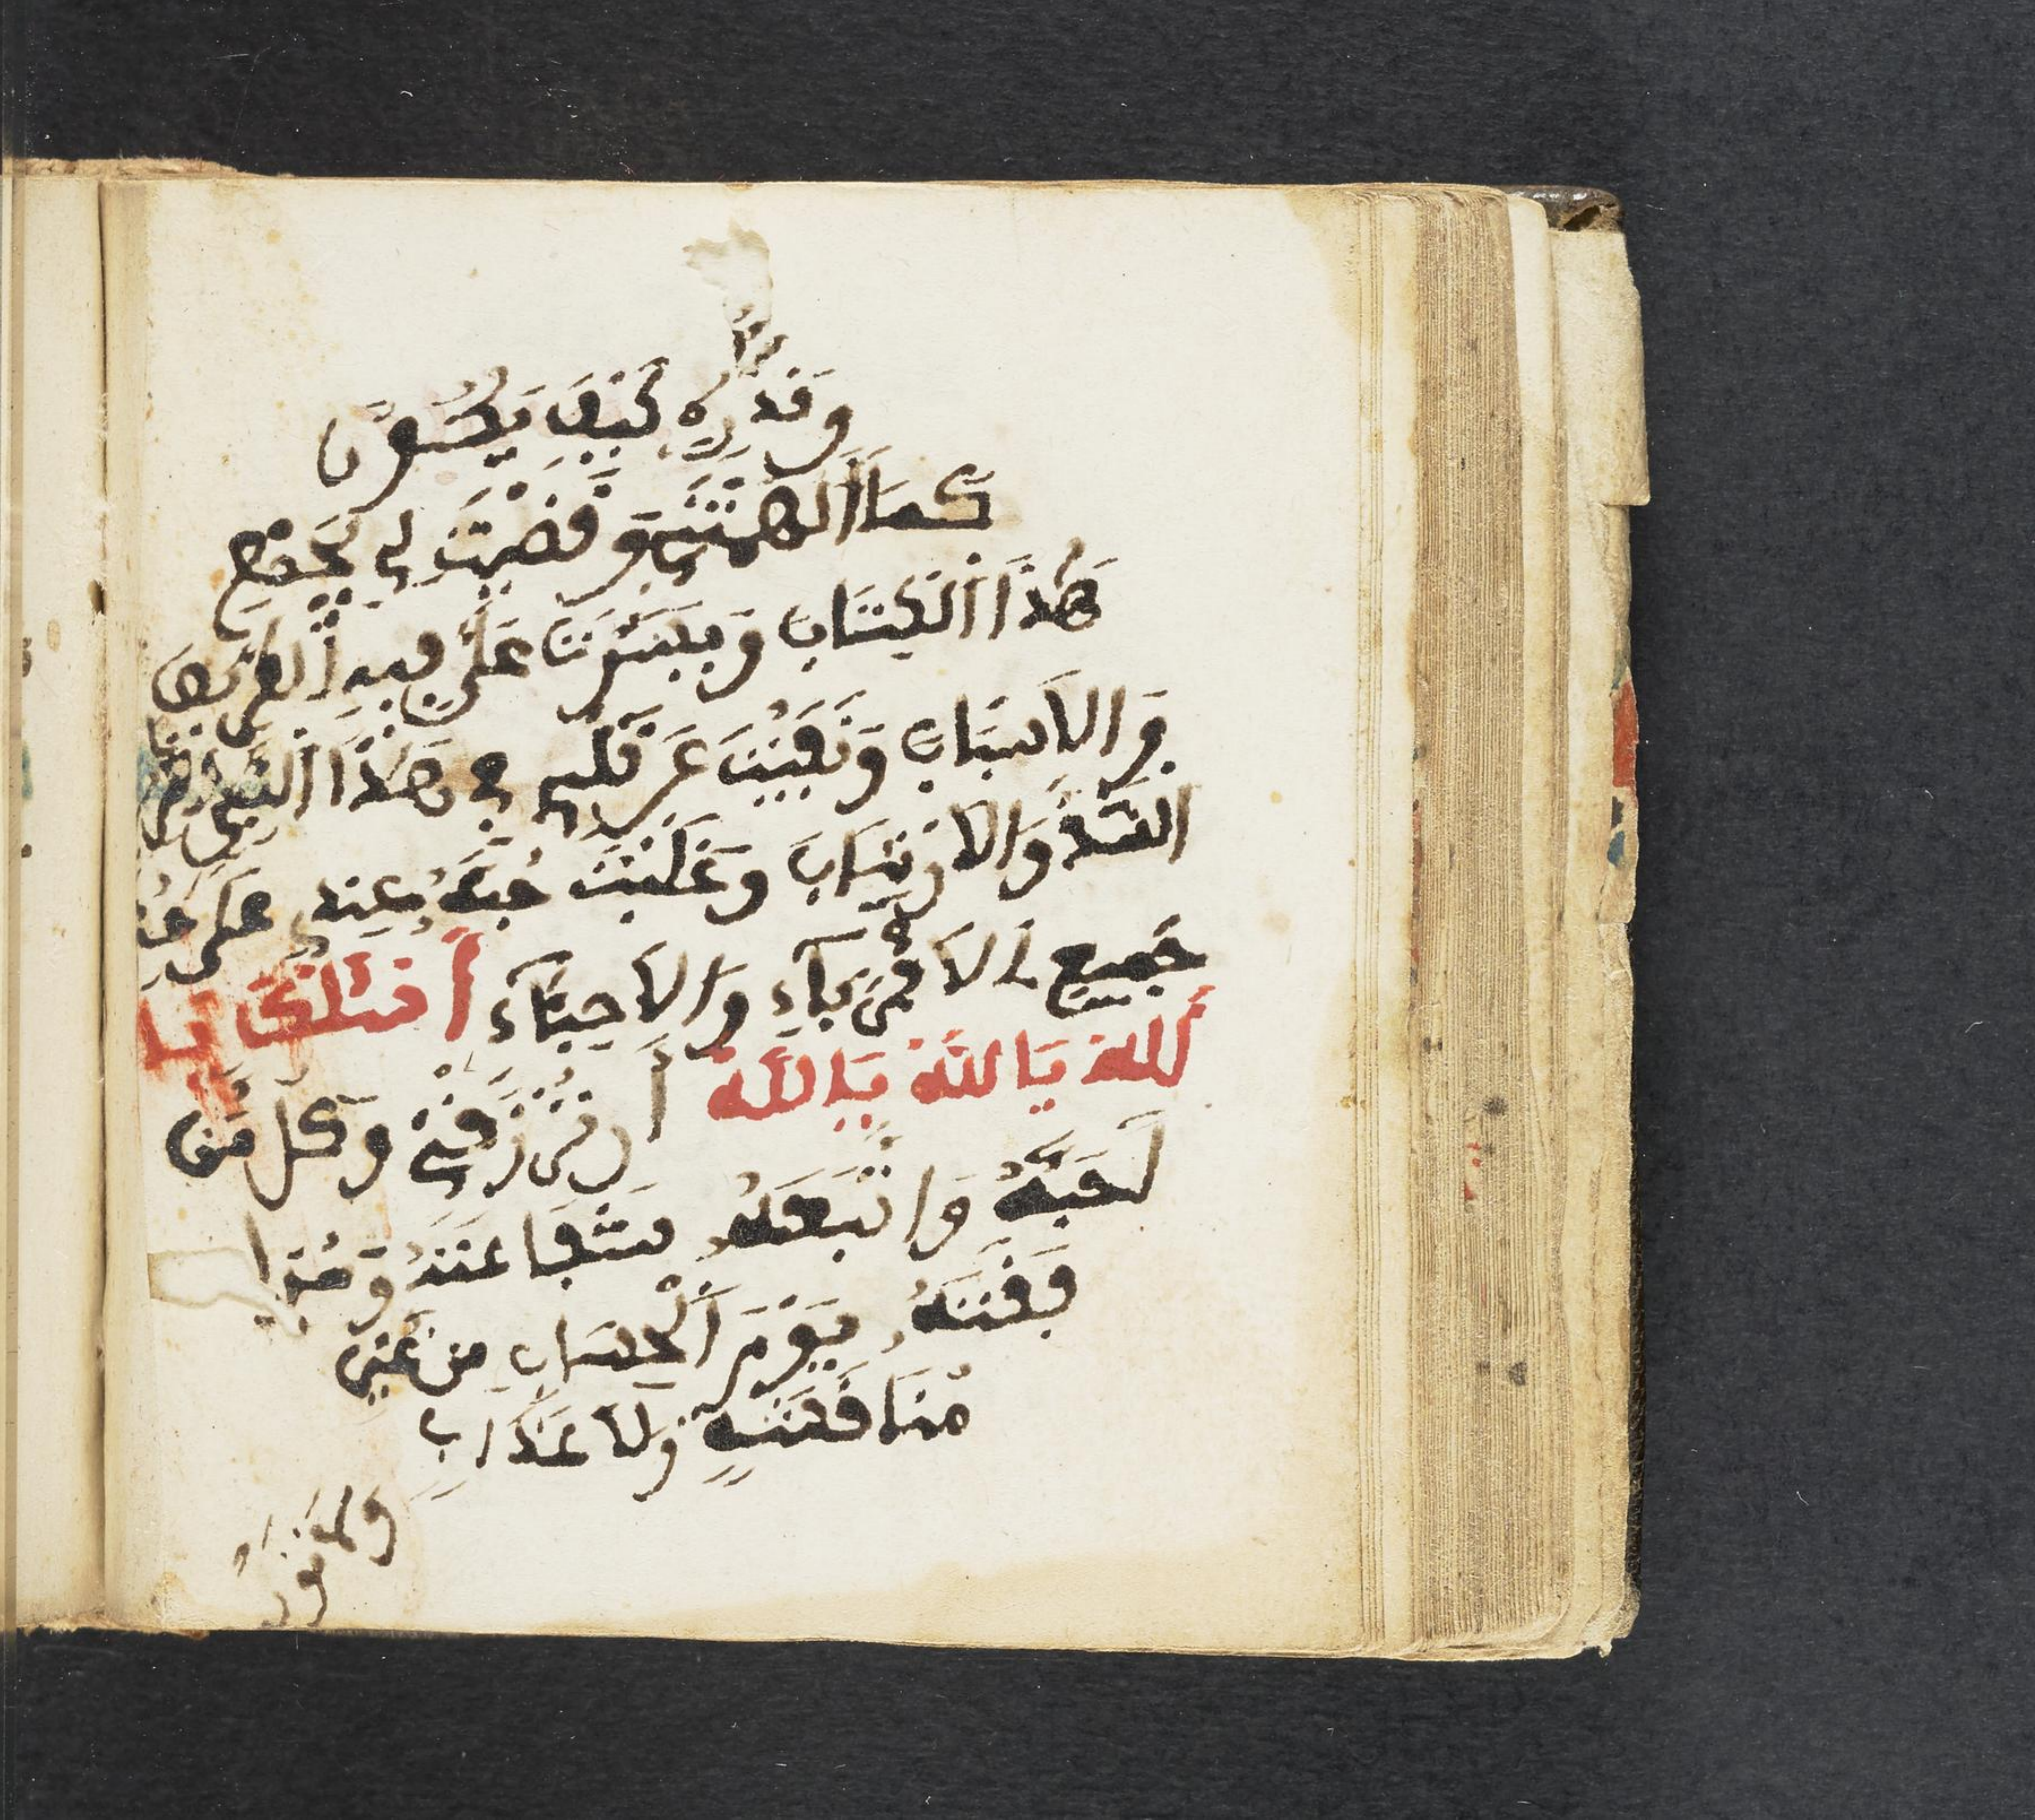 وَقَدْرِهِ كَيْفَ يَكُونُ
كَمَا أَلْهَمْتَنِي وَقَضَيْتَ لِي بِجَمْعِ
هَذَا الْكِتَابِ وَيَسَّرْتَ عَلَيَّ فِيهِ الطَّرِيقَ
وَالْأَسْبَابَ وَنَفَيْتَ عَنْ قَلْبِي فِي هَذَا النَّبِيِّ
الشَّكَّ وَالْارْتِيَابَ وَغَلَّبْتَ حُبَّهُ عِنْدِي عَلَى حُبِّ
جَمِيعِ الْأَقْرِبَاءِ وَالْأَحِبَّاءِ أَسْئَلُكَ يَا
أَللهُ يَا اللهُ يَا اللهُ أَنْ تَرْزُقَنِي وَكُلَّ مَنْ
أَحَبَّهُ وَاتَّبَعَهُ شَفَاعَتَهُ وَمُرَا
فَقَتَهُ يَوْمَ الْحِسَابِ مِنْ غَيْرِ
مُنَاقَشَةٍ وَلَا عَذَابٍ